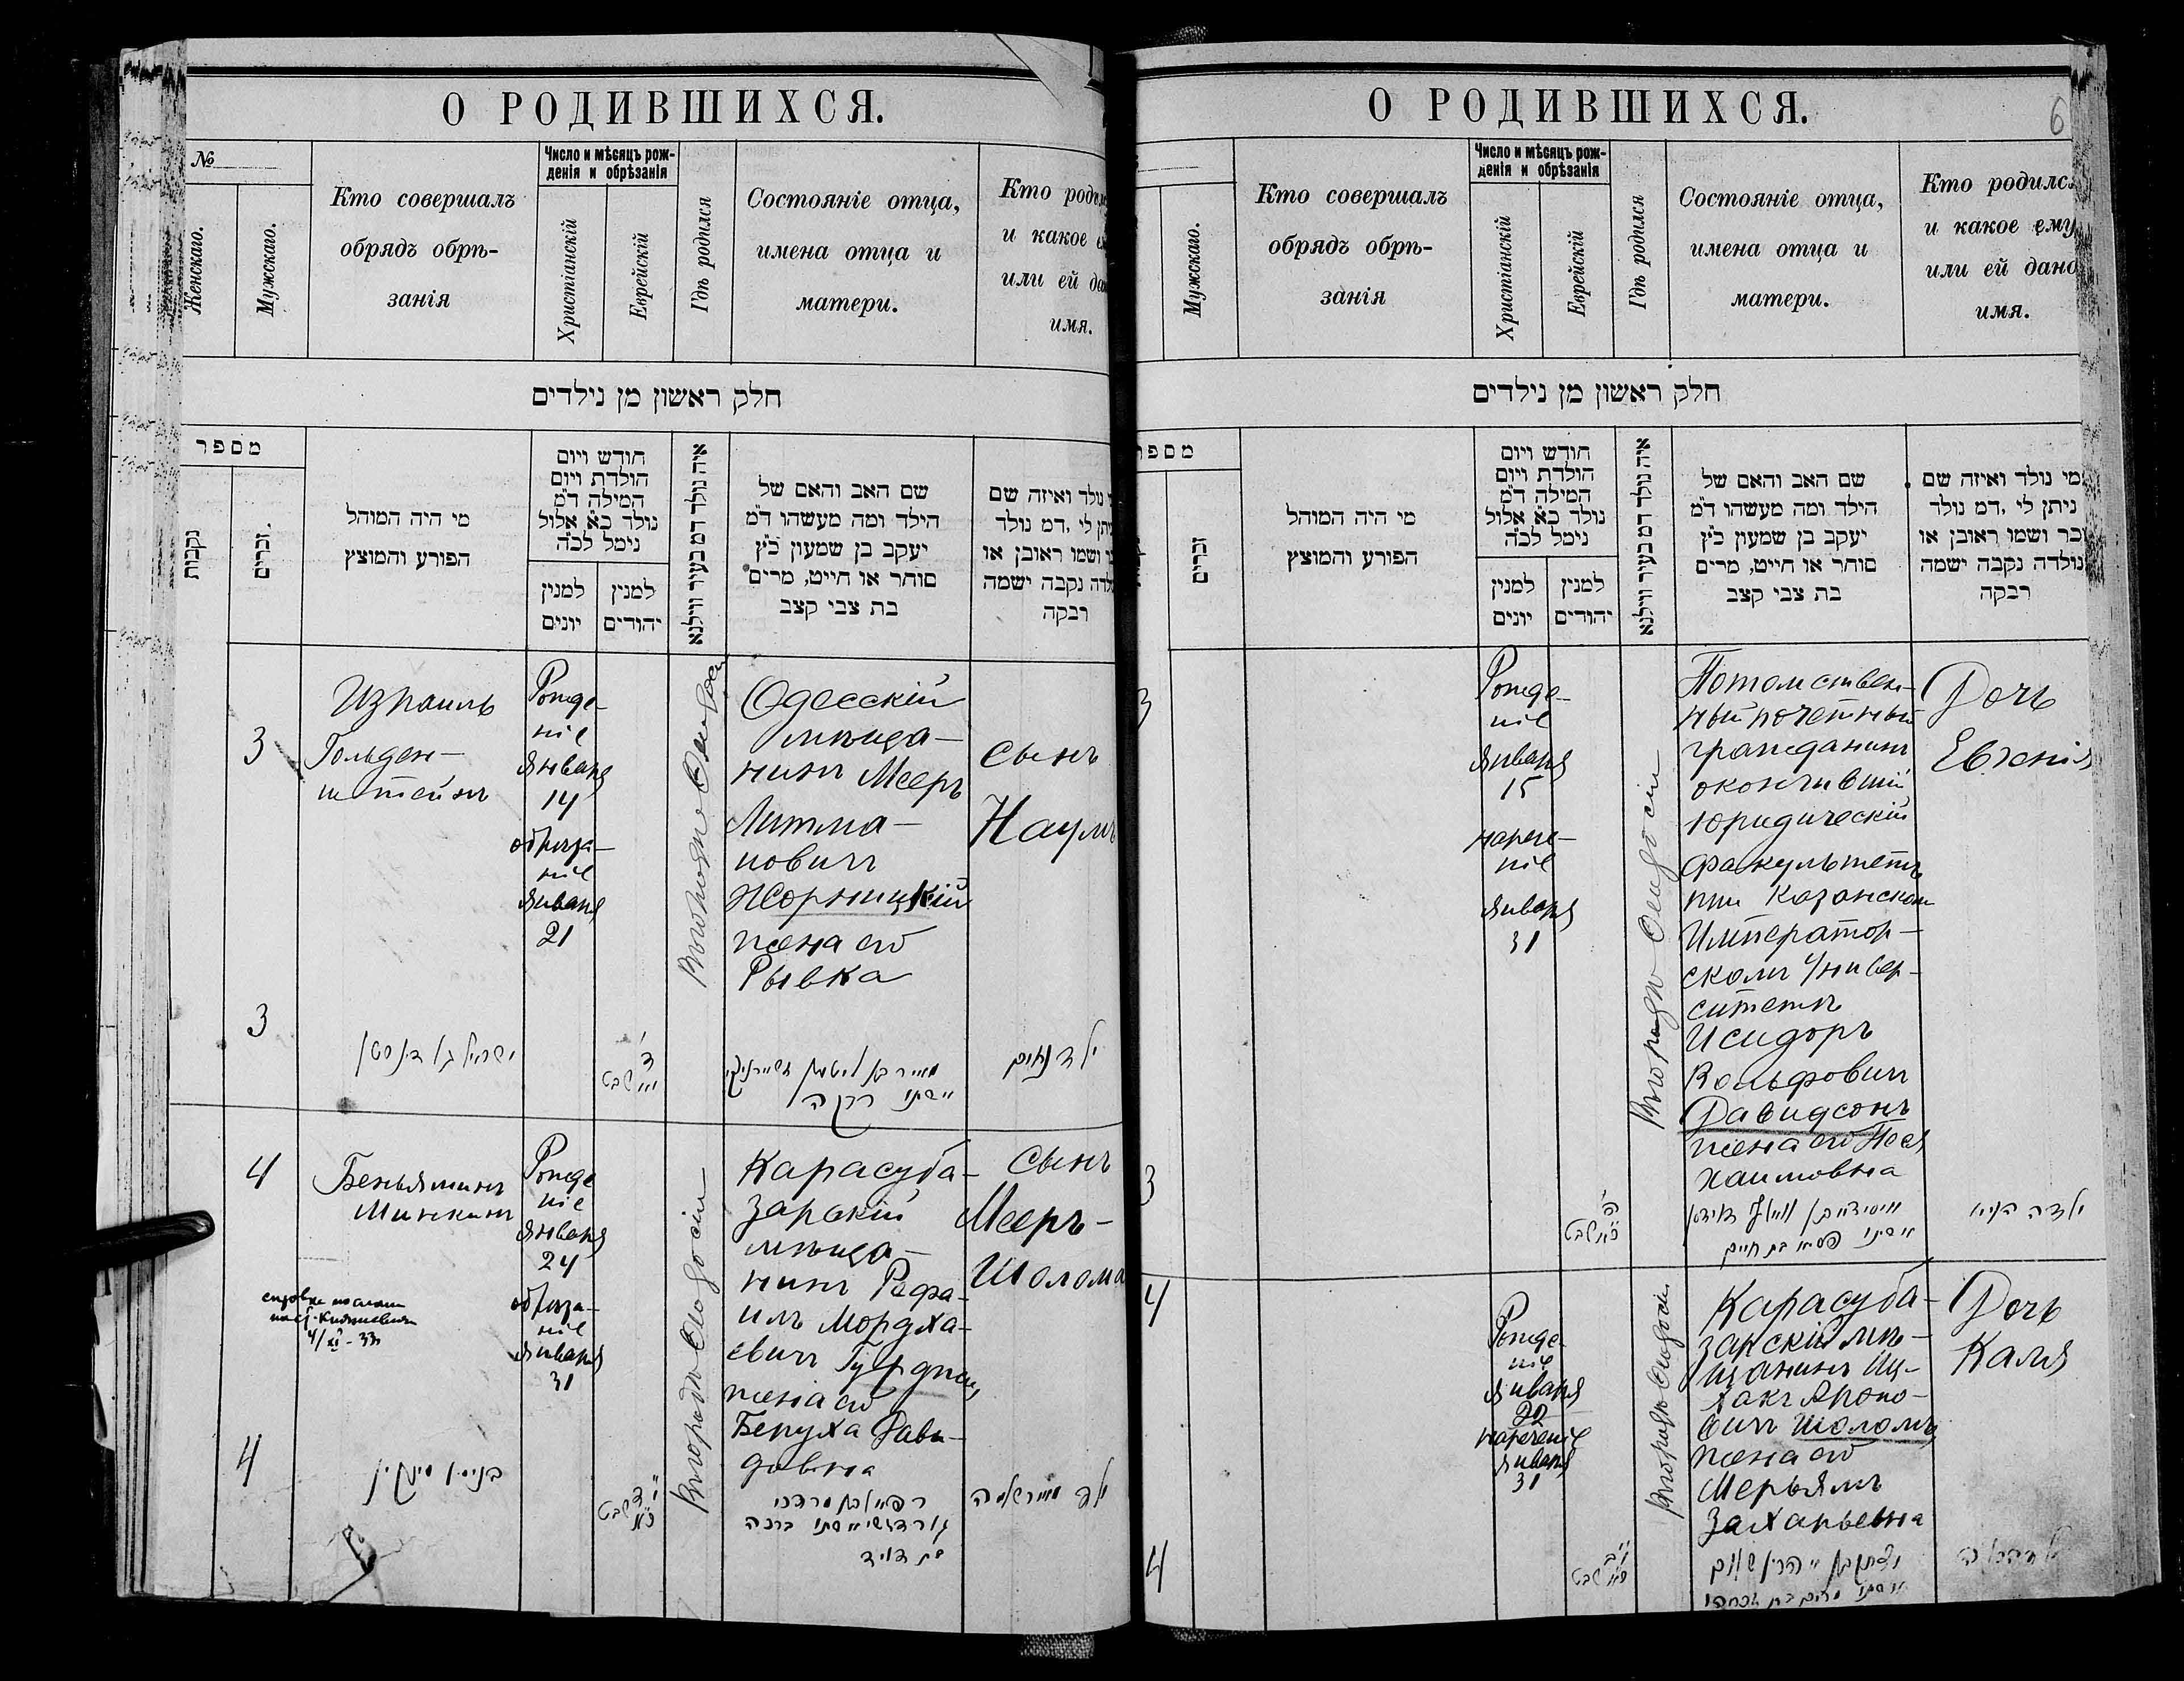 О РОДИВШИХСЯ.
№
Женскаго.
Мужскаго.
Кто совершалъ
обрядъ обрѣ-
занія
Число и мѣсяцъ рож-
денія и обрѣзанія
Христіанскій
Еврейскій
Гдѣ родился
Состояніе отца,
имена отца и
матери.
Кто
и какое
или ей
имя.
חלק ראשון מן נילדים
מספר
נקבות
זכרים.
מי היה המוהל
הפורע והמוצץ
חודש ויום
הולדת ויום
המילה ד״מ
נולד כ״א אלול
נימל לכ״ה
למנין
יונים
למנין
יהודים
איה נולד דמ בעיר ווילנא
שם האב והאם של
הילד ומה מעשהו ד״מ
יעקב בן שמעון כ״ץ
סוחר או חייט, מרים
בת צבי קצב
נולד ואיזה שם
לי, דמ נולד
ושמו ראובן או
נקבה ישמה
רבקה
3
Израиль
Гольден-
штейнъ
Рожде-
ніе
Января
14
обрѣза-
ніе
Января
21
Въ городѣ Ѳеодосіи
Одесскій
мѣща-
нинъ Мееръ
Литма-
новичъ
Жорницкій
жена его
Рывка
сынъ
Наумъ
3
שבט
ילד נחום
4
Беньяминъ
Минкинъ
Рожде
ніе
Января
24
обрѣза-
ніе
Января
31
Въ городѣ Ѳеодосіи
Карасуба-
зарскій
мѣща-
нинъ Рафа-
илъ Мордха-
евичъ
жена его
Беруха Дави-
довна
сынъ
Мееръ-
Шолома
4
בנימין מינקין
שבט
רפאל בן מרדכי
בת דויד
О РОДИВШИХСЯ.
6
Мужскаго.
Кто совершалъ
обрядъ обрѣ-
занія
Число и мѣсяцъ рож-
денія и обрѣзанія
Христіанскій
Еврейскій
Гдѣ родился
Состояніе отца,
имена отца и
матери.
Кто родился
и какое ему
или ей дано
имя.
חלק ראשון מן נילדים
זכרים
מי היה המוהל
הפורע והמוצץ
חודש ויום
הולדת ויום
המילה ד״מ
נולד כ״א אלול
נימל לכ״ה
למנין
יונים
למנין
יהודים
איה נולד דמ בעיר ווילנא
שם האב והאם של
הילד ומה מעשהו ד״מ
יעקב בן שמעון כ״ץ
סוחר או חייט, מרים
בת צבי קצב
מי נולד ואיזה שם
ניתן לי, דמ נולד
זכר ושמו ראובן או
נולדה נקבה ישמה
רבקה
3
Рожде-
ніе
Января
15
нарече-
ніе
Января
31
Въ городѣ Ѳеодосіи
Потомствен-
ный почетный
гражданинъ
окончившій
юридическій
факультетъ
при Казанскомъ
Император-
скомъ Универ-
ситетѣ
Исидоръ
Вольфовичъ
Давидсонъ
жена его
Хаимовна
Дочь
Евгенія
3
שבט
בת חיים
4
Рожде-
ніе
Января
22
нареченіе
Января
31
Въ городѣ Ѳеодосіи
Карасуба-
зарскій мѣ-
щанинъ Иц-
хакъ Ароно-
вичъ Шоломъ
жена его
Мерьямъ
Захарьевна
Дочь
Каля
4
שבט